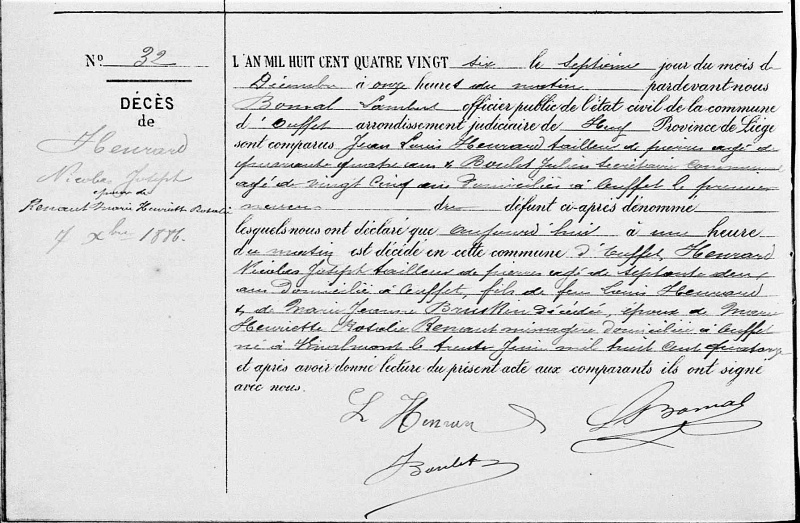 N° 32
DÉCÈS
de
Henrard
Nicolas Joseph
époux de
Renaut Marie Henriette Rosalie
7 Xbre 1886.
L'AN MIL HUIT CENT QUATRE VINGT six le septième jour du mois d
Décembre à onze heures du matin pardevant nous
Bomal Lambert officier public de l'état civil de la commune
d'Ouffet arrondissement judiciaire de Huy Province de Liége
sont comparus Jean Louis Henrard tailleur de pierres agé de
quarante quatre ans & Boulet Julien secrétaire communal
agé de vingt cinq ans domiciliés à Ouffet le premier
neveu du défunt ci-après dénommé
lesquels nous ont déclaré que aujourd'hui à une heure
du matin est décédé en cette commune d'Ouffet, Henrard
Nicolas Joseph tailleur de pierres agé de septante deux
ans domicilié à Ouffet, fils de feu Louis Henrard
& de Marie Jeanne décédée, époux de Marie
Henriette Rosalie Renaut ménagère domiciliée à Ouffet
né à Vinalmont le trente Juin mil huit cent quatorze
et après avoir donné lecture du présent acte aux comparants ils ont signé
avec nous.
L Henrard
L Bomal
Boulet